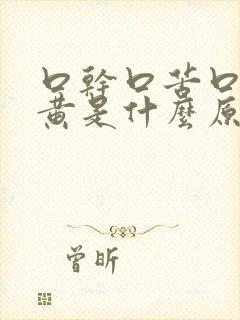 口幹口苦口
黄是什麼原
曾昕